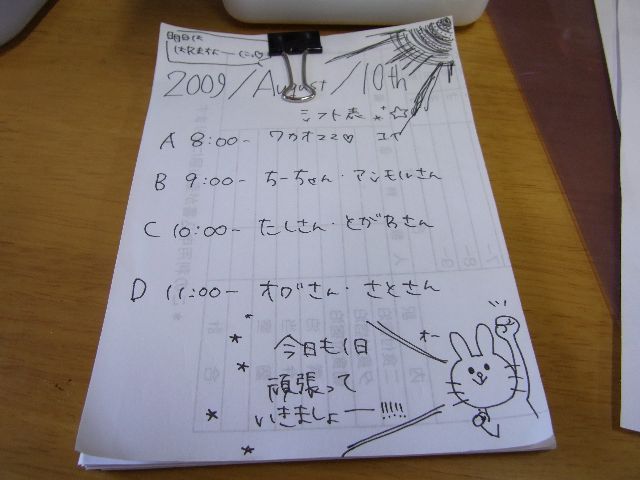 明日は
2009/August/10th
シフト表
A 8:00- ワカオママ♡
B 9:00- ちーちゃん・アンモルさん
C 10:00- たしさん・とがわさん
D 11:00- オグさん・さとさん
オー
今日も1日
頑張って
いきましょー!!!!!